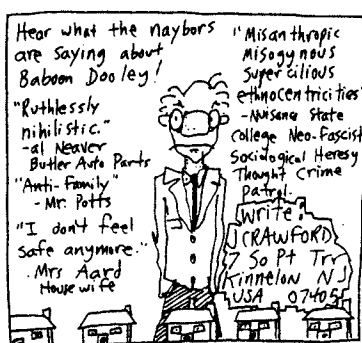 Hear what the naybors
are saying about
Baboon Dooley!
"Ruthlessly
nihilistic."
-al Neaver
Butler Auto Parts
"Anti-family"
- Mr. Potts
"I don't feel
safe anymore."
Mrs Aard
Housewife
"Misanthropic
Misogynous
Supercilious
ethnocentricities"
-Nuisana State
College Neo-Fascist
Sociological Heresy
Thought Crime
Patrol.
Write:
J CRAWFORD
7 So Pt Trr
Kinnelon NJ
USA 07405